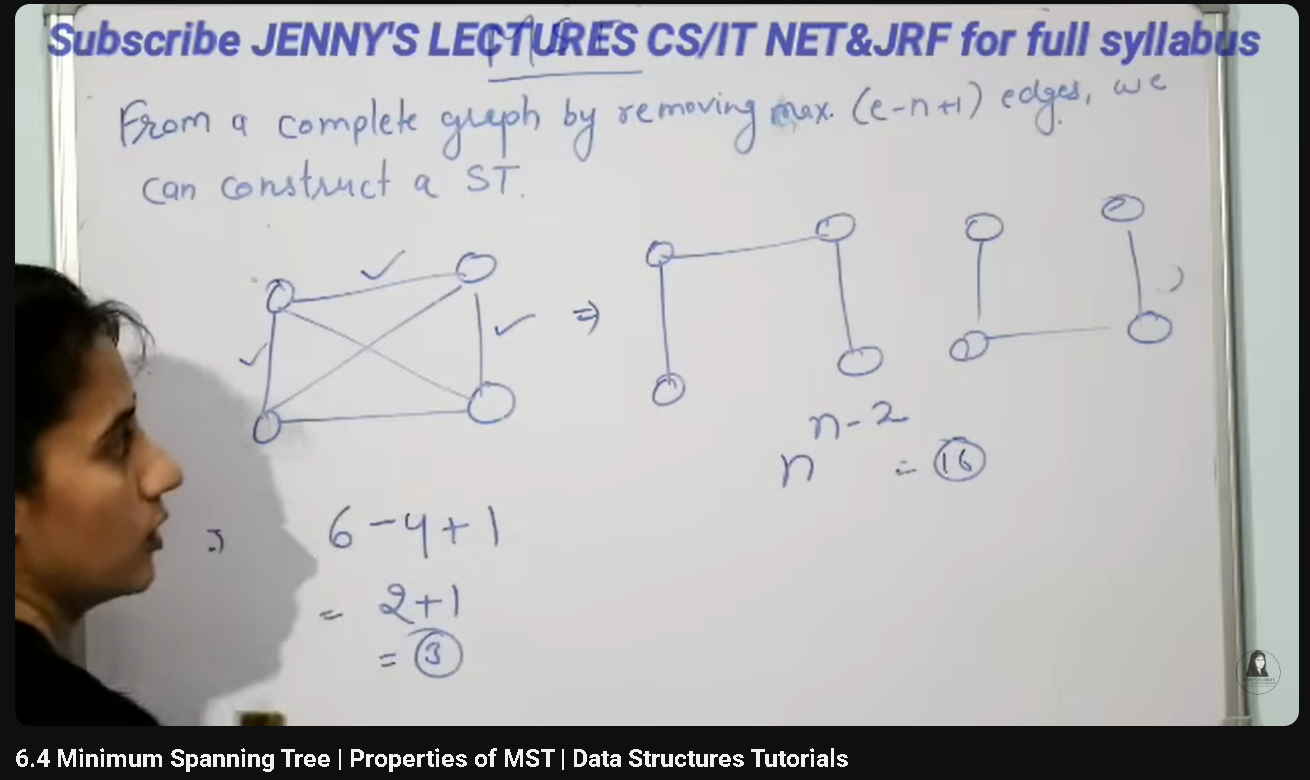 Subscribe JENNY'S LECTURES CS/IT NET&JRF for full syllabus
From a complete graph by removing max. (e-n+1) edges, we
can construct a ST.
⇒
n^{n-2} = 16
⇒ 6-4+1
= 2+1
= 3
6.4 Minimum Spanning Tree | Properties of MST | Data Structures Tutorials